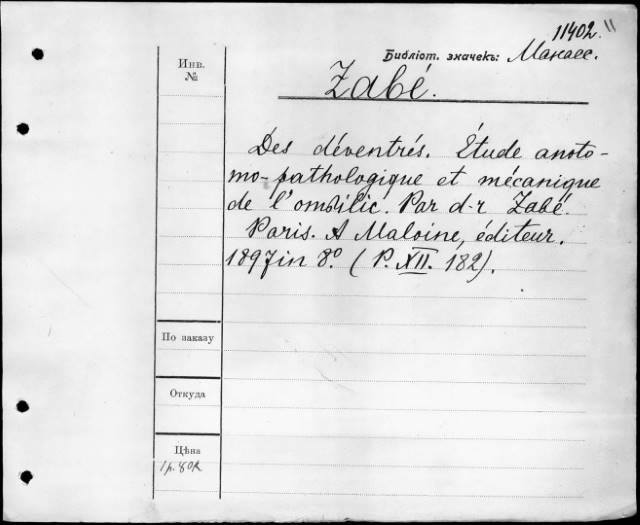 11402. "
Библіот. значекъ: Макаес.
Инв.
№
Zabé.
Des déventrés. Étude anoto-
mo-pathologique et mécanique
de l'ombilic. Par d-r Zabé.
Paris. A Maloine, éditeur.
1897 in 8° (P. XII. 182).
По заказу
Откуда
Цѣна
1р. 80к